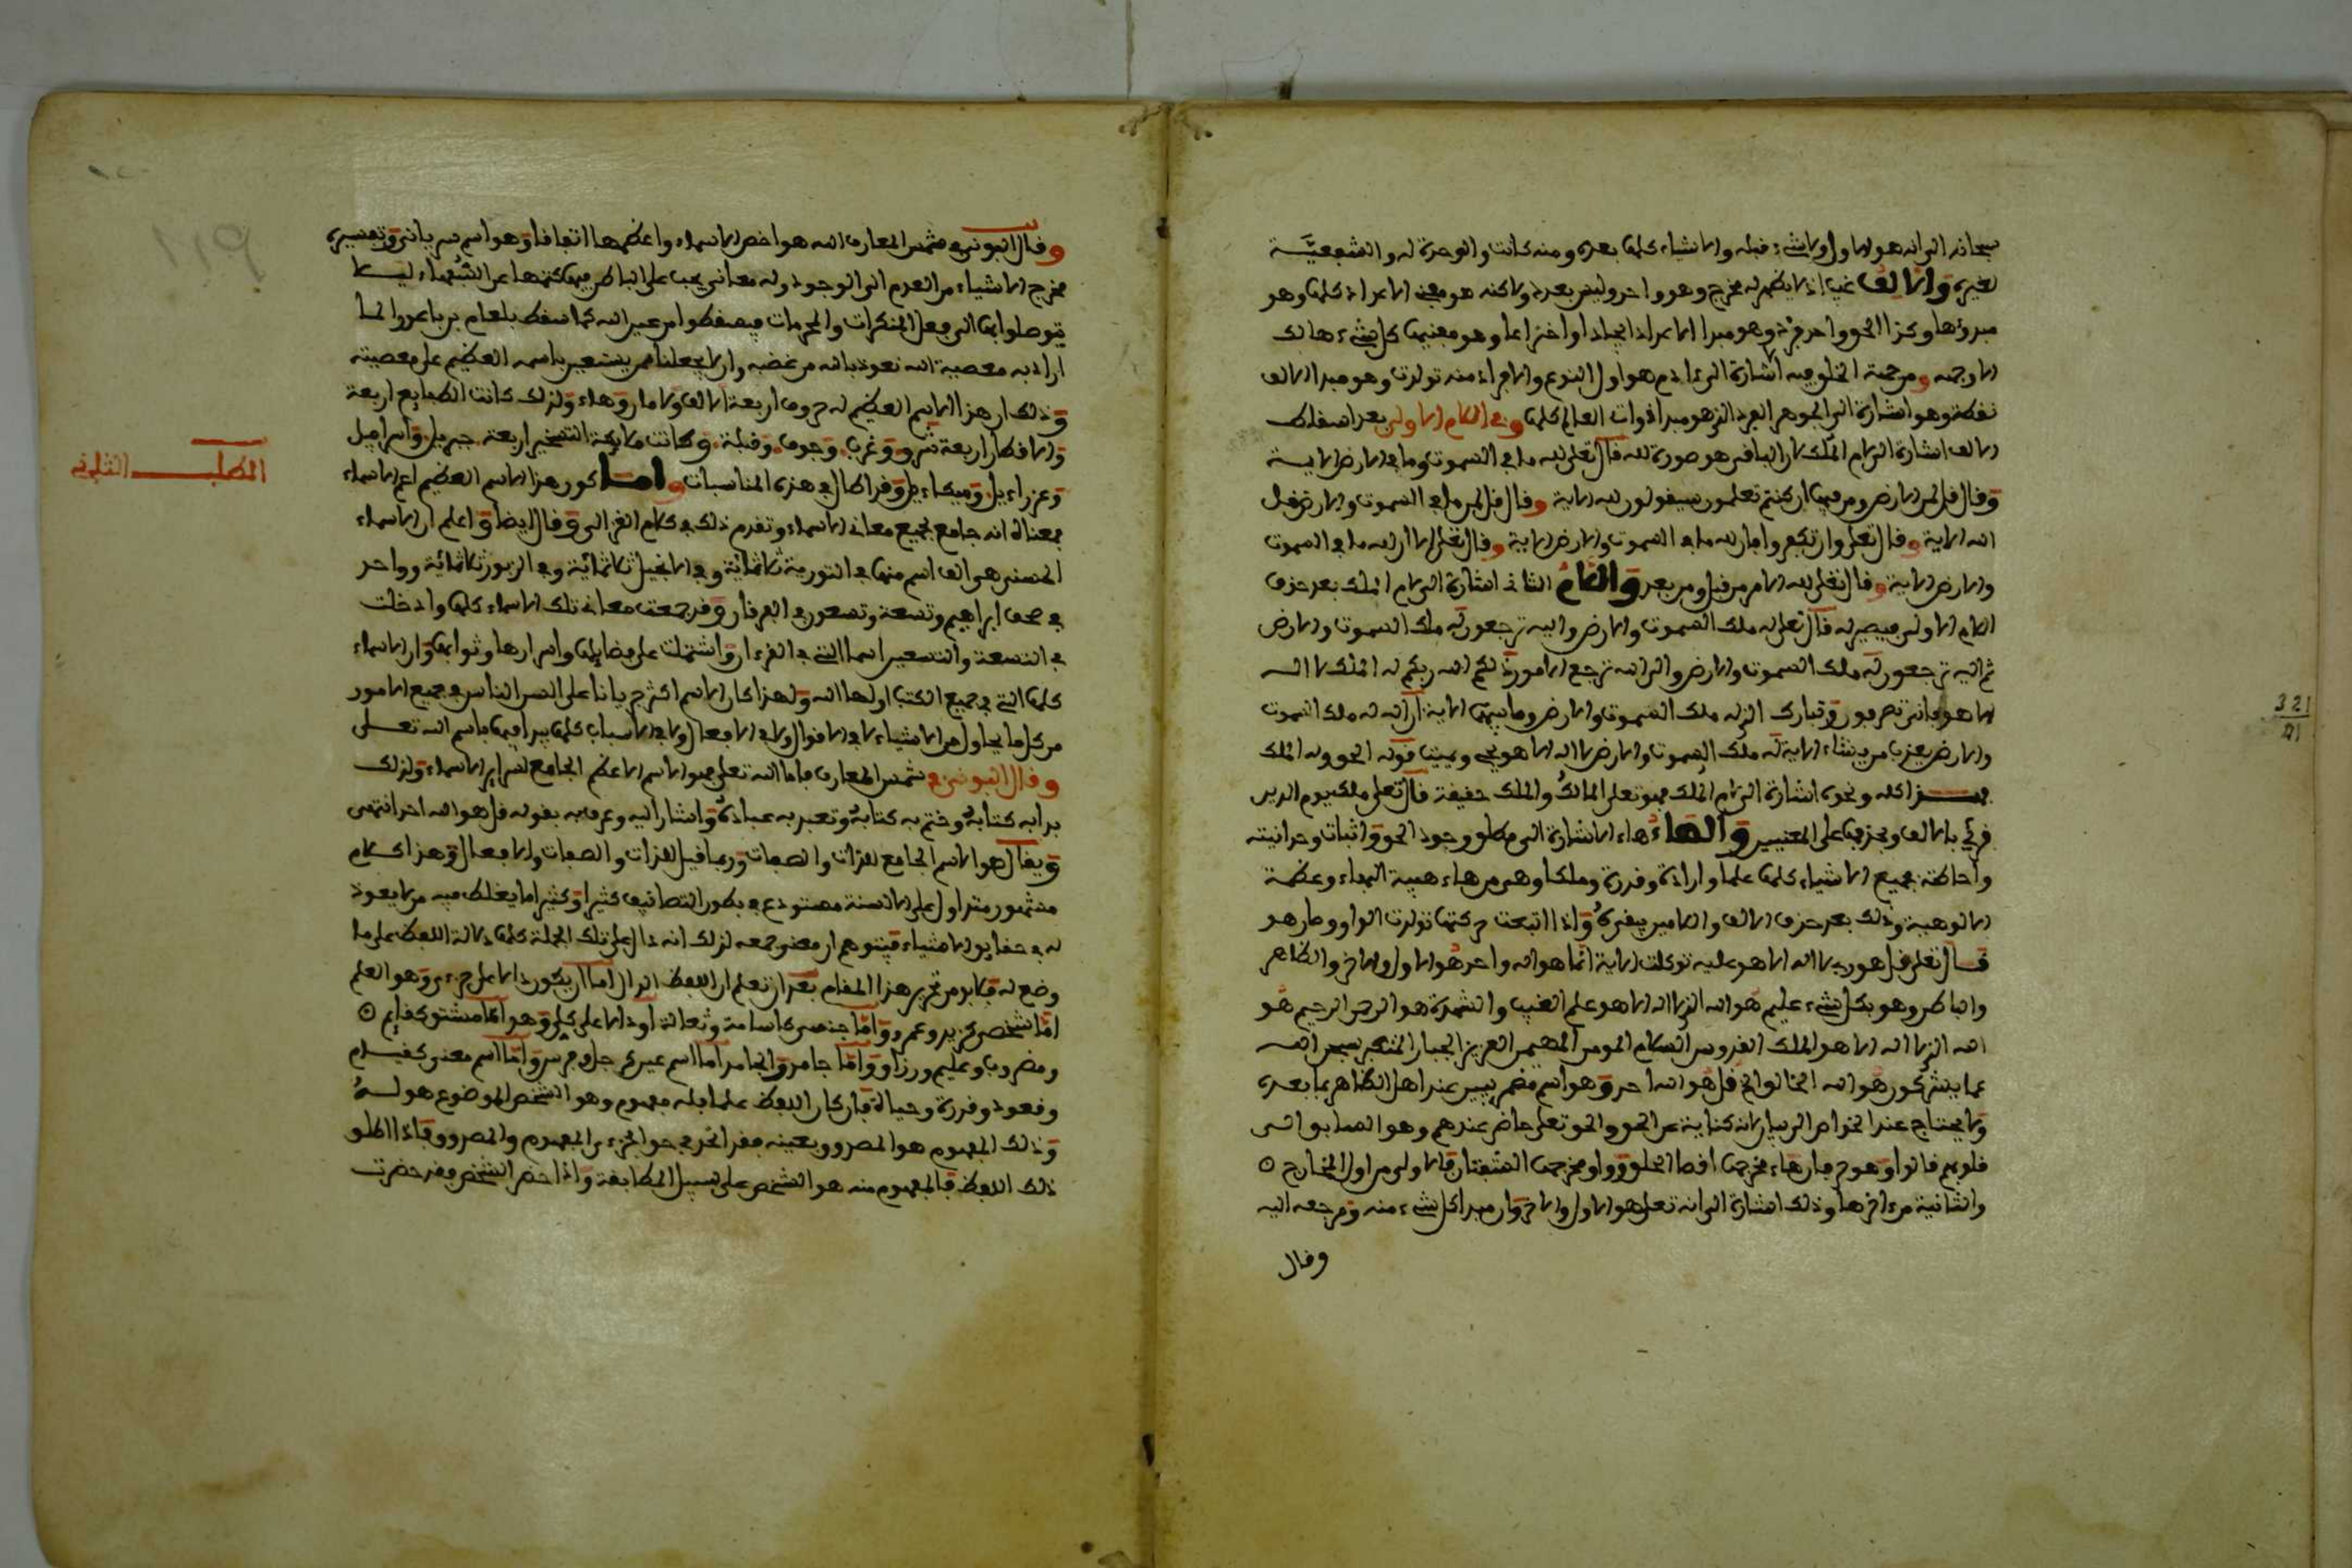 سبحانه الى انه هو الاول ولا شيء قبله والاشياء كلها بعده ومنه كانت والوحدة له والشفعية
لغيره والالف غيب اذ لا يظهر له مخرج وهو واحد وليس بعدد ولاكنه هو معنى الاعداد كلها وهو
مبدؤها وكذا الحق واحد فرد وهو مبدا الاعداد ايجادا واختراعا وهو مفنيها كل شيء هالك
الا وجهه ومرجعه الخلوقيه اشارة الى ءادم هو اول النوع والافراد منه تولدت وهو مبدا الالف
نقطة وهو اشارة الى الجوهر الفرد الذي هو مبدا ذوات العالم كلها وفي اللام الاولى بعد اسقاط
الالف اشارة الى لام الملك لان الباقي هو صورة لله قال تعلى لله ما في السموت وما في الارض الاية
وقال قل لمن الارض ومن فيها ان كنتم تعلمون سيقولون لله الاية وقال قل لمن ما في السموت والارض قل
لله الاية وقال تعلى وان تكفروا فان لله ما في السموت والارض الاية وقال تعلى الا ان لله ما في السموت
والارض الاية وقال تعلى لله الامر من قبل ومن بعد واللام الثاني اشارة الى لام الملك بعد حذف
اللام الاولى فيصير له قال تعلى له ملك السموت والارض واليه ترجعون له ملك السموت والارض
ثم اليه ترجعون له ملك السموت والارض والى الله ترجع الامور ذلكم الله ربكم له الملك لا اله
الا هو فانى تصرفون وتبارك الذي له ملك السموت والارض وما بينهما الاية ان الله له ملك السموت
والارض يعذب من يشاء الاية له ملك السموت والارض لا اله الا هو يحي ويميت قوله الحق وله الملك
هذا كله ونحوه اشارة الى لام الملك فهو تعلى المالك والملك حقيقة قال تعلى ملك يوم الدين
قرئ بالالف وبحذفها على المعنيين والهاء هاء الاشارة الى مطلق وجود الحق واثبات وحدانيته
واحاطته بجميع الاشياء كلها علما وارادة وقدرة وملكا وهي من هاء هيبة البهاء وعظمة
الالوهية وذلك بعد حذف الالف واللامين يبقى ه واذا اتبعت حركتها تولدت الواو وصار هو
قال تعلى قل هو ربي لا اله الا هو عليه توكلت الاية انما هو اله واحد هو الاول والاخر والظاهر
والباطن وهو بكل شيء عليم هو الله الذي لا اله الا هو علم الغيب والشهدة هو الرحمن الرحيم هو
الله الذي لا اله الا هو الملك القدوس السلام المومن المهيمن العزيز الجبار المتكبر سبحن الله
عما يشركون هو الله الخالق الخ قل هو الله احد وهو اسم مضمر يبين عند اهل الظاهر بما بعده
ولا يحتاج عند الخواص الى بيان لانه كناية عن الحق والحق تعلى حاضر عندهم وهو السابق الى
قلوبهم قالوا وهو حرفان هاء مخرجها اقصا الحلق وواو مخرجها الشفتان فالاولى من اول المخارج
والثانية من ءاخرها وذلك اشارة الى انه تعلى هو الاول والاخر وان مبدا كل شيء منه ومرجعه اليه
وقال
وقال البوني في شمس المعارف الله هو اخص الاسماء واعظمها اتفاقا وهو اسم سرياني وتفسيره
مخرج الاشياء من العدم الى الوجود وله معاني يجب على الناظر فيها كتمها عن السفهاء ليلا
يتوصلوا بها الى فعل المنكرات والمحرمات فيسقطوا من عين الله كما سقط بلعام بن باعورا لما
اراد به معصية الله نعوذ بالله من غضبه وان لا يجعلنا ممن يستعين باسمه العظيم على معصيته
وذلك ان هذا الاسم العظيم له حروف اربعة الالف ولامان وهاء ولذلك كانت الطبايع اربعة
والاقطار اربعة شرق وغرب وجوف وقبلة وكانت ملايكة التسخير اربعة جبريل واسرافيل
وعزراءيل وميكاءيل وقد اطال في هذه المناسبات واما كون هذا الاسم العظيم اعم الاسماء
فمعناه انه جامع لجميع معاني الاسماء وتقدم ذلك في كلام الغزالي وقال ايضا واعلم ان الاسماء
الحسنى هو الف اسم منها في التورية ثلاثمائة وفي الانجيل ثلاثمائة وفي الزبور ثلاثمائة وواحد
في صحف ابراهيم وتسعة وتسعون في الفرقان وقد جمعت معاني تلك الاسماء كلها وادخلت
في التسعة والتسعين اسما التي في القرءان واشتملت على فضايلها واسرارها وثوابها وان الاسماء
كلها التي في جميع الكتب اولها الله ولهذا كان الاسم اكثر جريانا على السن الناس في جميع الامور
من كل ما يحاول من الاشياء لا في الاقوال ولا في الافعال ولا في الاسباب كلها يبدا فيها باسم الله تعلى
وقال البوني في شمس المعارف فاما الله تعلى فهو الاسم الاعظم الجامع لساير الاسماء ولذلك
بدا به كتابه وختم به كتابه وتعبد به عباده واشار اليه وعرف به بقوله قل هو الله احد انتهى
ويقال هو الاسم الجامع للذات والصفات وربما قيل للذات والصفات والافعال وهذا كلام
مشهور متداول على الالسنة مستودع في بطون التصانيف كثيرا وكثيرا ما يغلط فيه من لا يعود
له في حقايق الاشياء فيتوهم ان معنى جمعه لذلك انه دال على تلك الجملة كلها دلالة اللفظ على ما
وضع له فلا بد من تحرير هذا المقام بعد ان تعلم ان اللفظ الدال اما ان يكون دالا على جزءي وهو العلم
اما شخصي كزيد وعمرو واما جنسي كاسامة وثعالة او دالا على كلي وهو اما مشتق كقايم
ومضروب وعليم ورزاق واما جامد والجامد اما اسم عين كرجل وفرس واما اسم معنى كقيام
وقعود وقدرة وحياة فان كان اللفظ علما فله مفهوم وهو الشخص الموضوع هو له
وذلك المفهوم هو المصدوق بعينه فقد اتحد في حق الجزءي المفهوم والمصدوق فاذا اطلق
ذلك اللفظ فالمفهوم منه هو الشخص على سبيل المطابقة واذا حضر الشخص فقد حضرت
المطلب الثاني
321
21